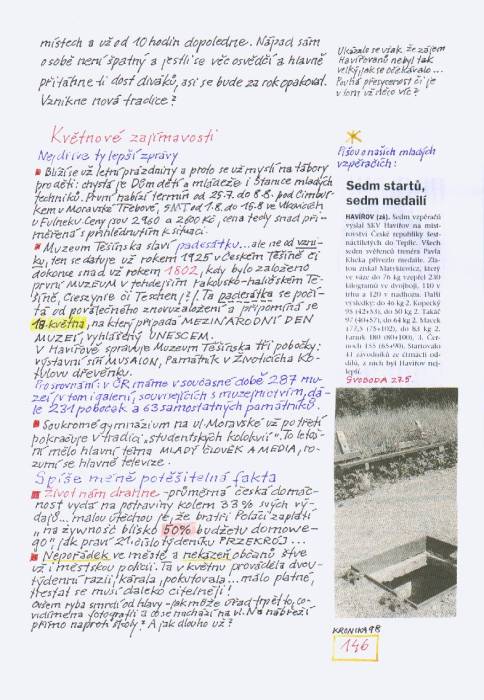 místech a už od 10 hodin dopoledne. Nápad sám
o sobě není špatný a jestli se věc osvědčí a hlavně
přitáhne ti dost diváků, asi se bude za rok opakovat.
Vznikne nová tradice?
Ukázalo se však, že zájem
Havířovanů nebyl tak
velký, jak se očekávalo...
Pouhá přesycenost či je
v tom už něco víc?
Květnové zajímavosti
Nejdříve ty lepší zprávy
Blíží se už letní prázdniny a proto se už myslí na tábory
pro děti: chystá je Dům dětí a mládeže i Stanice mladých
techniků. První nabízí termín od 25.7. do 8.8. pod Cimbur-
kem v Moravské Třebové, SMT od 1.8. do 15.8 ve Vlkovicích
u Fulneku. Ceny jsou 2960 a 2600 Kč, cena tedy snad při-
měřená s přihlédnutím k situaci.
Muzeum Těšínska slaví padesátku...ale ne od vzni-
ku, ten se datuje už rokem 1925 v Českém Těšíně či
dokonce snad už rokem 1802, kdy bylo založeno
první MUZEUM v tehdejším rakousko-haličském Tě-
šíně, Cieszyně či Teschen!?! Ta padesátka se počí-
tá od poválečného znovuzaložení a připomíná se
18. května, na který připadá MEZINÁRODNÍ DEN
MUZEÍ, vyhlášený UNESCEM.
V Havířově spravuje Muzeum Těšínska tři pobočky:
výstavní síň MUSAION, Památník v Životicích a Ko-
tulovu dřevěnku.
Pro srovnání: v ČR máme v současné době 287 mu-
zeí (v tom i galerií, souvisejících s muzejnictvím), dá-
le 231 poboček a 63 samostatných památníků.
Soukromé gymnázium na ul. Moravské už potřetí
pokračuje v tradici „studentských kolokvií". To letoš-
ní mělo hlavní téma MLADÝ ČLOVĚK A MEDIA, ro-
zumí se hlavně televize.
Spíše méně potěšitelná fakta
Život nám drahne - průměrná česká domác-
nost vydá na potraviny kolem 33% svých vý-
dajů... malou útěchou je, že bratři Poláci zaplatí
„na zywność blisko 50% budżetu domowe-
go" jak praví 21. číslo týdeníku PRZEKRÓJ...
Nepořádek ve městě a nekázeň občanů štve
už i městskou policii. Ta v květnu prováděla dvou-
týdenní razii, kárala, pokutovala... málo platné,
trestat se musí daleko citelněji!
Ovšem ryba smrdí od hlavy - jak může úřad trpět to, co
vidíme na fotografii a co se nachází na ul. Na nábřeží
přímo naproti školy? A jak dlouho už?
Píšou o našich mladých
vzpěračích:
Sedm startů,
sedm medailí
HAVÍŘOV (zá). Sedm vzpěračů
vyslal SKV Havířov na mis-
trovství České republiky šest-
náctiletých do Teplic. Všech
sedm svěřenců trenéra Pavla
Kheka přivezlo medaili. Zla-
tou získal Matykiewicz, který
ve váze do 76 kg vzepřel 230
kilogramů ve dvojboji, 110 v
trhu a 120 v nadhozu. Další
výsledky: do 46 kg 2. Kopecký
95 (42+53), do 50 kg 2. Takáč
97 (40+57), do 64 kg 2. Macek
177,5 (75+102), do 83 kg 2.
Faruk 180 (80+100), 3. Čer-
noch 155 (65+90). Startovalo
41 závodníků ze čtrnácti od-
dílů, z nich byl Havířov nej-
lepší.
SVOBODA 27.5.
KRONIKA 98
146